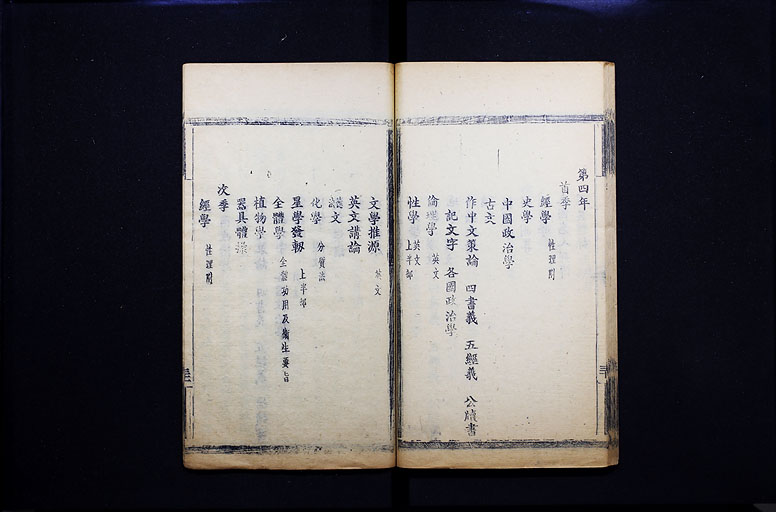 第四年
首季
經學 性理闢
史學
中國政治學
古文
作中文策論 四書義 五經義 公牘書
記文字 各國政治學
倫理學 英文
性學 英文 上半部
文學推源 英文
英文講論
譯文
化學 分質法
星學發軔 上半部
全體學 全體功用及衛生要旨
植物學
器具體操
次季
經學 性理闢